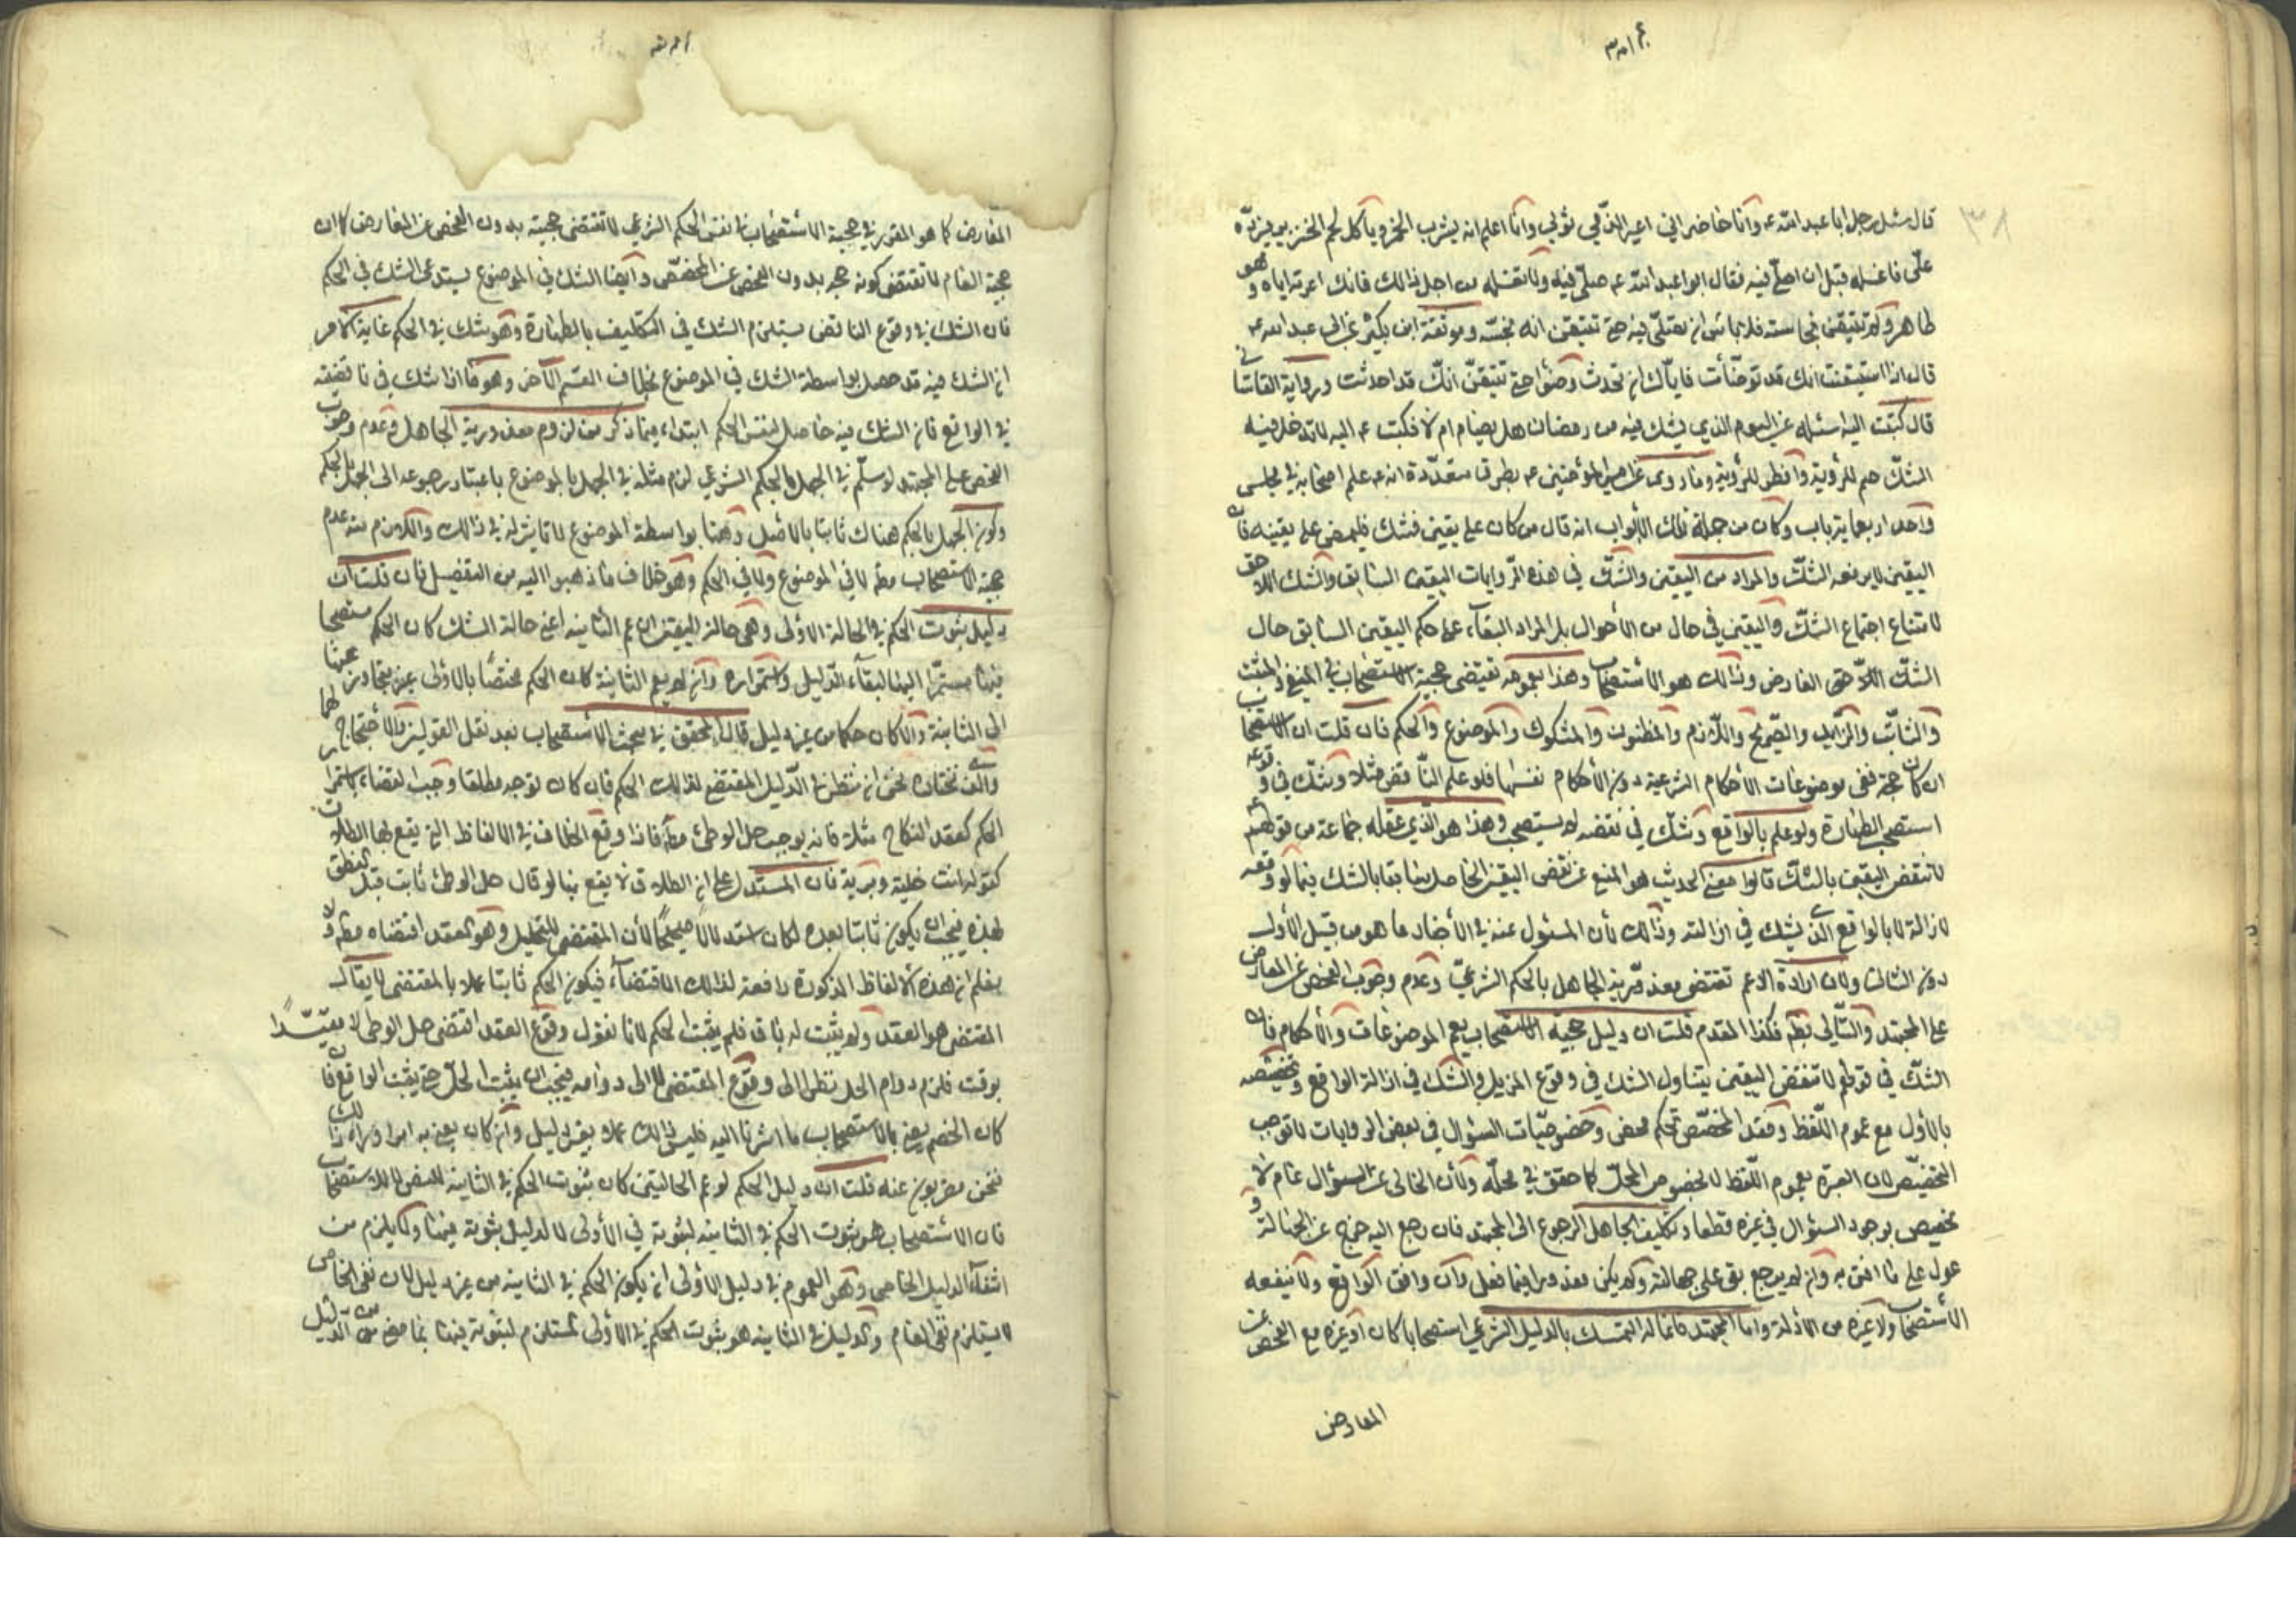 قال سئل رجل ابا عبد الله ع وانا حاضر اني اعير الذمي ثوبي وانا اعلم انه يشرب الخمر ويأكل لحم الخنزير فيرده
علي فاغسله قبل ان اصلي فيه فقال ابو عبد الله ع صلّ فيه ولا تغسله من اجل ذالك فانك اعرته اياه وهو
طاهر ولم تتيقن نجاسته فلا باس ان تصلي فيه حتى تتيقن انه نجسه وموثقة ابن بكير عن ابي عبد الله ع
قال اذا استيقنت انك قد توضأت فاياك ان تحدث وضوءا حتى تتيقن انك قد احدثت ورواية القاساني
قال كتبت اليه اسئله عن اليوم الذي يشك فيه من رمضان هل يصام ام لا فكتب ع اليه لا تدخل فيه
الشك صم للرؤية وافطر للرؤية وما روى عن امير المؤمنين ع بطرق متعددة انه ع علم اصحابه في مجلس
واحد اربعمأية باب وكان من جملة تلك الابواب انه قال من كان على يقين فشك فليمض على يقينه فان
اليقين لا يرفعه الشك والمراد من اليقين والشك في هذه الروايات اليقين السابق والشك اللاحق
لامتناع اجتماع الشك واليقين في حال من الاحوال بل المراد البقاء على حكم اليقين السابق حال
الشك اللاحق العارض وذالك هو الاستصحاب وهذا بعمومه تقتضي حجية الاستصحاب في المنفي والمثبت
والثابت والزايل والصريح واللازم والمظنون والمشكوك والموضوع والحكم فان قلت ان الاستصحاب
ان كان حجة ففي موضوعات الاحكام الشرعية دون الاحكام نفسها فلو علم الناقض مثلا وشك في وقوعه
استصحب الطهارة ولو علم بالواقع وشك في نقضه لم يستصحب وهذا هو الذي عقله جماعة من قولهم ع
لا تنقض اليقين بالشك قالوا معنى الحديث هو المنع عن نقض اليقين الحاصل سابقا بالشك فيما لو وقع
لازالة لا بالواقع الذي يشك في ازالته وذالك لأن المسئول عنه في الاخبار ما هو من قبيل الأول
دون الثالث ولان ارادة الاعم تقتضي معذورية الجاهل بالحكم الشرعي وعدم وجوب الفحص عن المعارض
على المجتهد والتالي بط فكذا المقدم قلت ان دليل حجية الاستصحاب يعم الموضوعات والأحكام فان
الشك في قولهم لا تنقض اليقين يتناول الشك في وقوع المزيل والشك في ازالة الواقع وتخصيصه
بالأول مع عموم اللفظ وفقد المخصص تحكم محض وخصوصيات السؤال في بعض الروايات لا توجب
التخصيص لان العبرة بعموم اللفظ لا بخصوص المحل كما حقق في محله ولأن الخالي عن السؤال عام لا
تخصيص بوجود السؤال في غيره قطعا وتكليف الجاهل الرجوع الى المجتهد فان رجع اليه خرج عن الجهالة و
عول على ما افتى به وان لم يرجع بقى على جهالته ولم يكن معذورا فيما فعل وان وافق الواقع ولا ينفعه
الاستصحاب ولا غيره من الادلة واما المجتهد فانما له التمسك بالدليل الشرعي استصحابا كان او غيره مع الفحص عن
المعارض
المعارض كما هو المقرر في حجية الاستصحاب في نفس الحكم الشرعي لا تقتضي حجيته بدون الفحص عن المعارض كما ان
حجية العام لا تقتضي كونه حجة بدون الفحص عن المخصص وايضا الشك في الموضوع يستدعى الشك في الحكم
فان الشك في وقوع الناقض يستلزم الشك في التكليف بالطهارة وهو شك في الحكم غاية الامر
ان الشك فيه قد حصل بواسطة الشك في الموضوع بخلاف القسم الآخر وهو ما اذا شك في ناقضية
في الواقع فان الشك فيه حاصل لنفس الحكم ابتداء فيما ذكر من لزوم معذورية الجاهل وعدم وجوب
الفحص على المجتهد لو سلم في الجهل بالحكم الشرعي لزم مثله في الجهل بالموضوع باعتبار رجوعه الى الجهل بالحكم
وكون الجهل بالحكم هناك ثابتا بالاصل وهنا بواسطة الموضوع لا تاثير له في ذالك واللازم منه عدم
حجية الاستصحاب مطلقا لا في الموضوع ولا في الحكم وهو خلاف ما ذهبوا اليه من التفصيل فان قلت ان
دليل ثبوت الحكم في الحالة الاولى وهي حالة اليقين ان عم الثانية اعني حالة الشك كان الحكم مستصحبا
فيها مستمرا اليها لبقاء الدليل واستمراره وان لم يعم الثانية كان الحكم مختصا بالاولى غير متجاوز عنها
الى الثانية والا كان حكما من غير دليل قال المحقق في بحث الاستصحاب بعد نقل القولين والاحتجاج لهما
والذي نختاره نحن ان ننظر في الدليل المقتضي لذالك الحكم فان كان يوجبه مطلقا وجب القضاء باستمرار
الحكم كعقد النكاح مثلا فانه يوجب حل الوطئ مطلقا فاذا وقع الخلاف في الالفاظ التي يقع بها الطلاق
كقوله انت خلية وبرية فان المستدل على ان الطلاق لا يقع بها لو قال حل الوطئ ثابت قبل النطق
بهذه فيجب ان يكون ثابتا بعده لكان استدلالا صحيحا لأن المقتضي للتحليل وهو العقد اقتضاه مطلقا ولا
يعلم ان هذه الالفاظ المذكورة رافعة لذالك الاقتضاء فيكون الحكم ثابتا عملا بالمقتضى لا يقال
المقتضى هو العقد ولم يثبت له باق فلم يثبت الحكم لانا نقول وقوع العقد اقتضى حل الوطى لا مقيدا
بوقت فلزم دوام الحل نظرا الى وقوع المقتضى لا الى دوامه فيجب ان يثبت الحل حتى يثبت الرافع فان
كان الخصم يعني بالاستصحاب ما اشرنا اليه فليس ذالك عملا بغير دليل وان كان يعني به امرا وراء ذالك
فنحن مضربون عنه قلت ان دليل الحكم لو عم الحالتين كان ثبوت الحكم في الثانية للنص لا للاستصحاب
فان الاستصحاب هو ثبوت الحكم في الثانية لثبوته في الأولى لا لدليل ثبوته فيهما ولا يلزم من
انتفاء الدليل الخاص وهو العموم في دليل الاولى ان يكون الحكم في الثانية من غير دليل لان نفى الخاص
لا يستلزم نفى العام والدليل في الثانية هو ثبوت الحكم في الأولى المستلزم لثبوته فيها بما مضى من الدليل